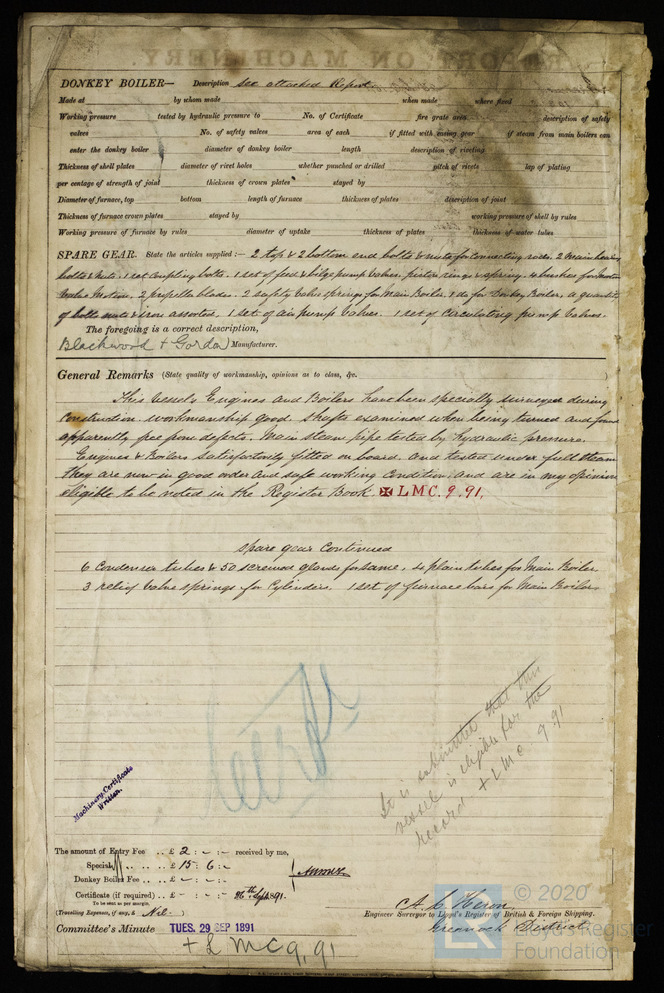 DONKEY BOILER— Description See attached Report.
Made at by whom made when made where fixed
Working pressure tested by hydraulic pressure to No. of Certificate fire grate area description of safety
valves No. of safety valves area of each if fitted with easing gear if steam from main boilers can
enter the donkey boiler diameter of donkey boiler length description of riveting
Thickness of shell plates diameter of rivet holes whether punched or drilled pitch of rivets lap of plating
per centage of strength of joint thickness of crown plates stayed by
Diameter of furnace, top bottom length of furnace thickness of plates description of joint
Thickness of furnace crown plates stayed by working pressure of shell by rules
Working pressure of furnace by rules diameter of uptake thickness of plates thickness of water tubes
SPARE GEAR. State the articles supplied:— 2 top & 2 bottom end bolts & nuts for connecting rods. 2 main bearing
bolts & nuts. 1 set coupling bolts. 1 set of feed & bilge pump valves. piston rings & springs.
2 propeller blades. 2 safety valve springs for Main Boiler. 1 do for Donkey Boiler, a quantity
of bolts nuts & iron assorted. 1 set of air pump valves. 1 set of circulating pump valves.
The foregoing is a correct description,
Blackwood & Gordon Manufacturer.
General Remarks (State quality of workmanship, opinions as to class, &c.
This vessels Engines and Boilers have been specially surveyed during
construction. workmanship good. Shafts examined when being turned and found
apparently free from defects. Main steam pipe tested by hydraulic pressure.
Engines & Boilers satisfactorily fitted on board. and tested under full steam
they are now in good order and safe working condition. and are in my opinion
eligible to be noted in the Register Book. ✠ LMC. 9.91.
Spare gear continued
6 Condenser tubes & 50 screwed glands for same. 4 plain tubes for Main Boiler
3 relief valve springs for Cylinders. 1 set of furnace bars for Main Boilers
It is submitted that this
vessel is eligible for the
record + LMC. 9.91
Machinery Certificate
Written.
The amount of Entry Fee .. £ 2 : - : - received by me,
Special .. £ 15 : 6 : -
Donkey Boiler Fee .. £ - : - : -
Certificate (if required) .. £ - : - : - 26th Sept. 1891.
To be sent as per margin.
(Travelling Expenses, if any, £ Nil - )
Engineer Surveyor to Lloyd's Register of British & Foreign Shipping.
Greenock District
Committee's Minute TUES. 29 SEP 1891
+ LMC 9.91
© 2020
Lloyd's Register
Foundation